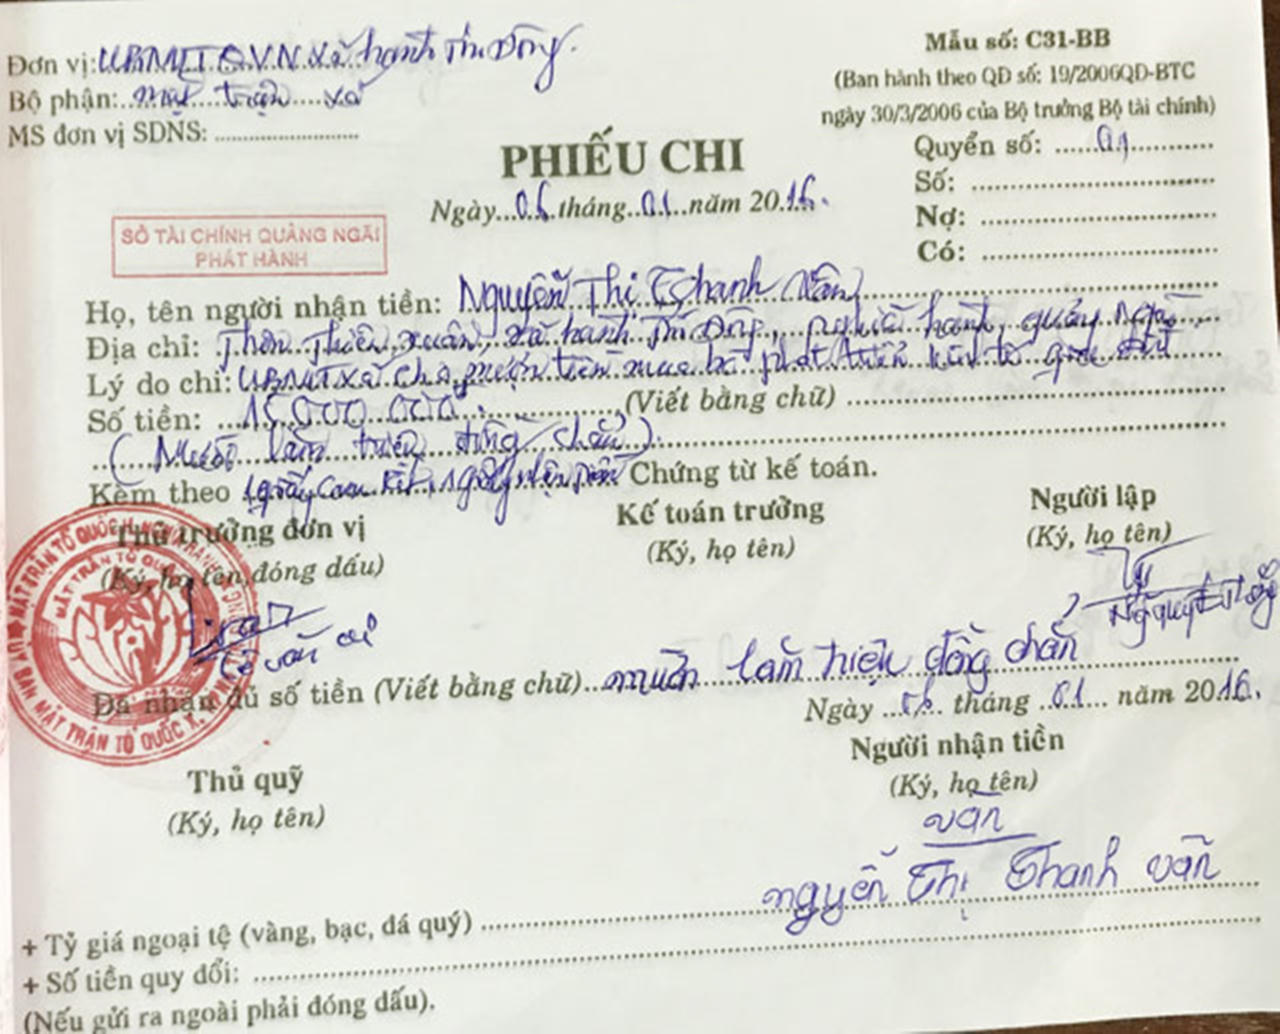 Đơn vị: UBMTTQVN xã hành Tín Đông.
Bộ phận: mặt trận xã
MS đơn vị SDNS: ..........................
Mẫu số: C31-BB
(Ban hành theo QD số: 19/2006QD-BTC
ngày 30/3/2006 của Bộ trưởng Bộ tài chính)
PHIẾU CHI
Ngày....tháng..01..năm 2016.
Quyển số: ......01............
Số: ..............................
Nợ: ..............................
Có: ..............................
SỞ TÀI CHÍNH QUẢNG NGÃI
PHÁT HÀNH
Họ, tên người nhận tiền: Nguyễn Thị Thanh Vân
Địa chỉ: Thôn Thiên Xuân, xã hành Tín Đông, nghĩa hành, quảng Ngãi
Lý do chi: UBMT xã cho mượn tiền mua bò phát triển kinh tế gia đình
Số tiền: 15.000.000 (Viết bằng chữ) ..............
(Mười lăm triệu đồng chẵn).
Kèm theo 1 giấy cam kết, Chứng từ kế toán.
Thủ trưởng đơn vị
(Ký, họ tên, đóng dấu)
Kế toán trưởng
(Ký, họ tên)
Người lập
(Ký, họ tên)
ỦY BAN MẶT TRẬN TỔ QUỐC
MẶT TRẬN TỔ QUỐC
Đã nhận đủ số tiền (Viết bằng chữ) mười lăm triệu đồng chẵn
Ngày ...... tháng ..01.... năm 2016.
Thủ quỹ
(Ký, họ tên)
Người nhận tiền
(Ký, họ tên)
vân
nguyễn Thị Thanh vân
+ Tỷ giá ngoại tệ (vàng, bạc, dá quý) ..............
+ Số tiền quy đổi: ..............
(Nếu gửi ra ngoài phải đóng dấu).